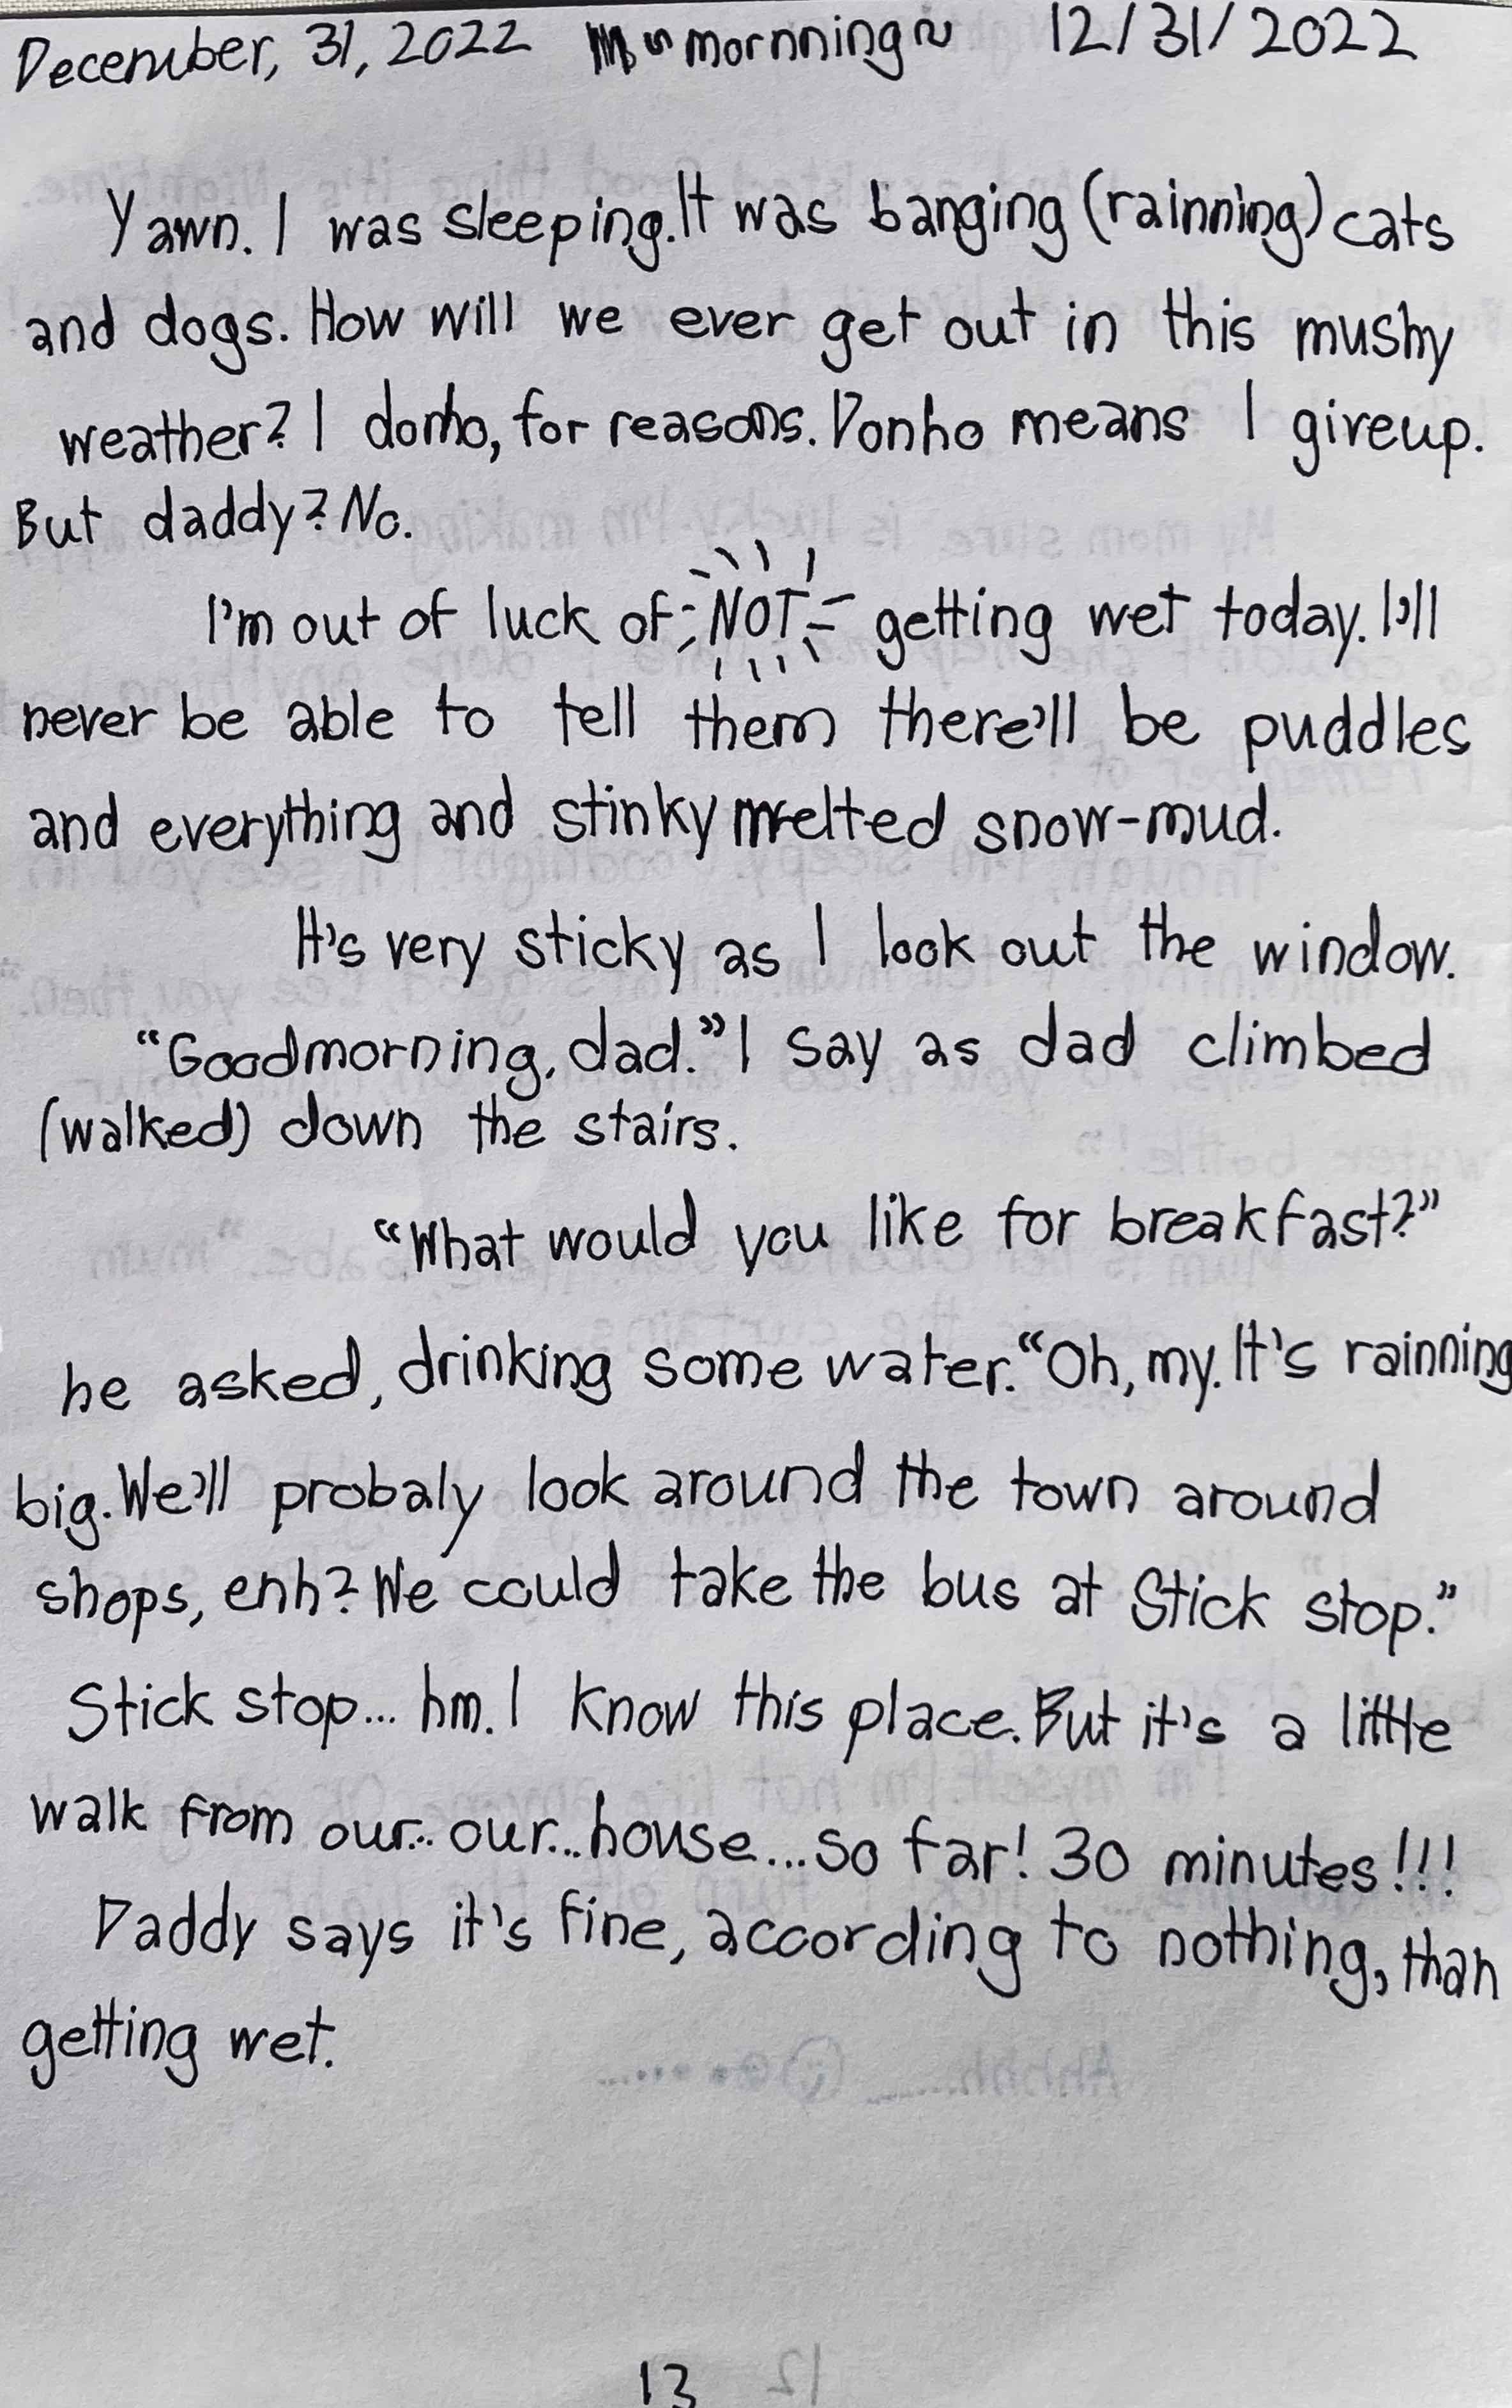 December, 31, 2022 ~ mornning ~ 12/31/2022
Yawn. I was sleeping. It was banging (rainning) cats
and dogs. How will we ever get out in this mushy
weather? I donho, for reasons. Donho means I giveup.
But daddy? No.
I'm out of luck of NOT getting wet today. I'll
never be able to tell them there'll be puddles
and everything and stinky melted snow-mud.
It's very sticky as I look out the window.
"Goodmorning, dad." I say as dad climbed
(walked) down the stairs.
"What would you like for breakfast?"
he asked, drinking some water. "Oh, my. It's rainning
big. We'll probaly look around the town around
shops, enh? We could take the bus at Stick stop."
Stick stop... hm. I know this place. But it's a little
walk from our... our... house... so far! 30 minutes!!!
Daddy says it's fine, according to nothing, than
getting wet.
13